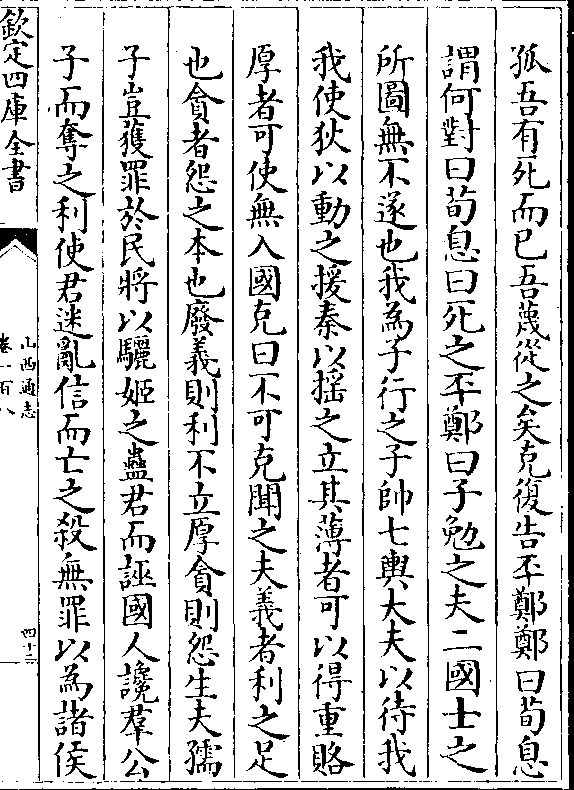 孤吾有死而已吾蔑從之矣克復告丕鄭鄭曰荀息
謂何對曰荀息曰死之丕鄭曰子勉之夫二國士之
所圖無不遂也我為子行之子帥七輿大夫以待我
我使狄以動之援秦以揺之立其薄者可以得重賂
厚者可使無入國克曰不可克聞之夫義者利之足
也貪者怨之本也廢義則利不立厚貪則怨生夫孺
子豈獲罪於民將以驪姬之蠱君而誣國人讒羣公
子而奪之利使君迷亂信而亡之殺無罪以為諸侯
欽定四庫全書
山西通志
卷一百八
四十三